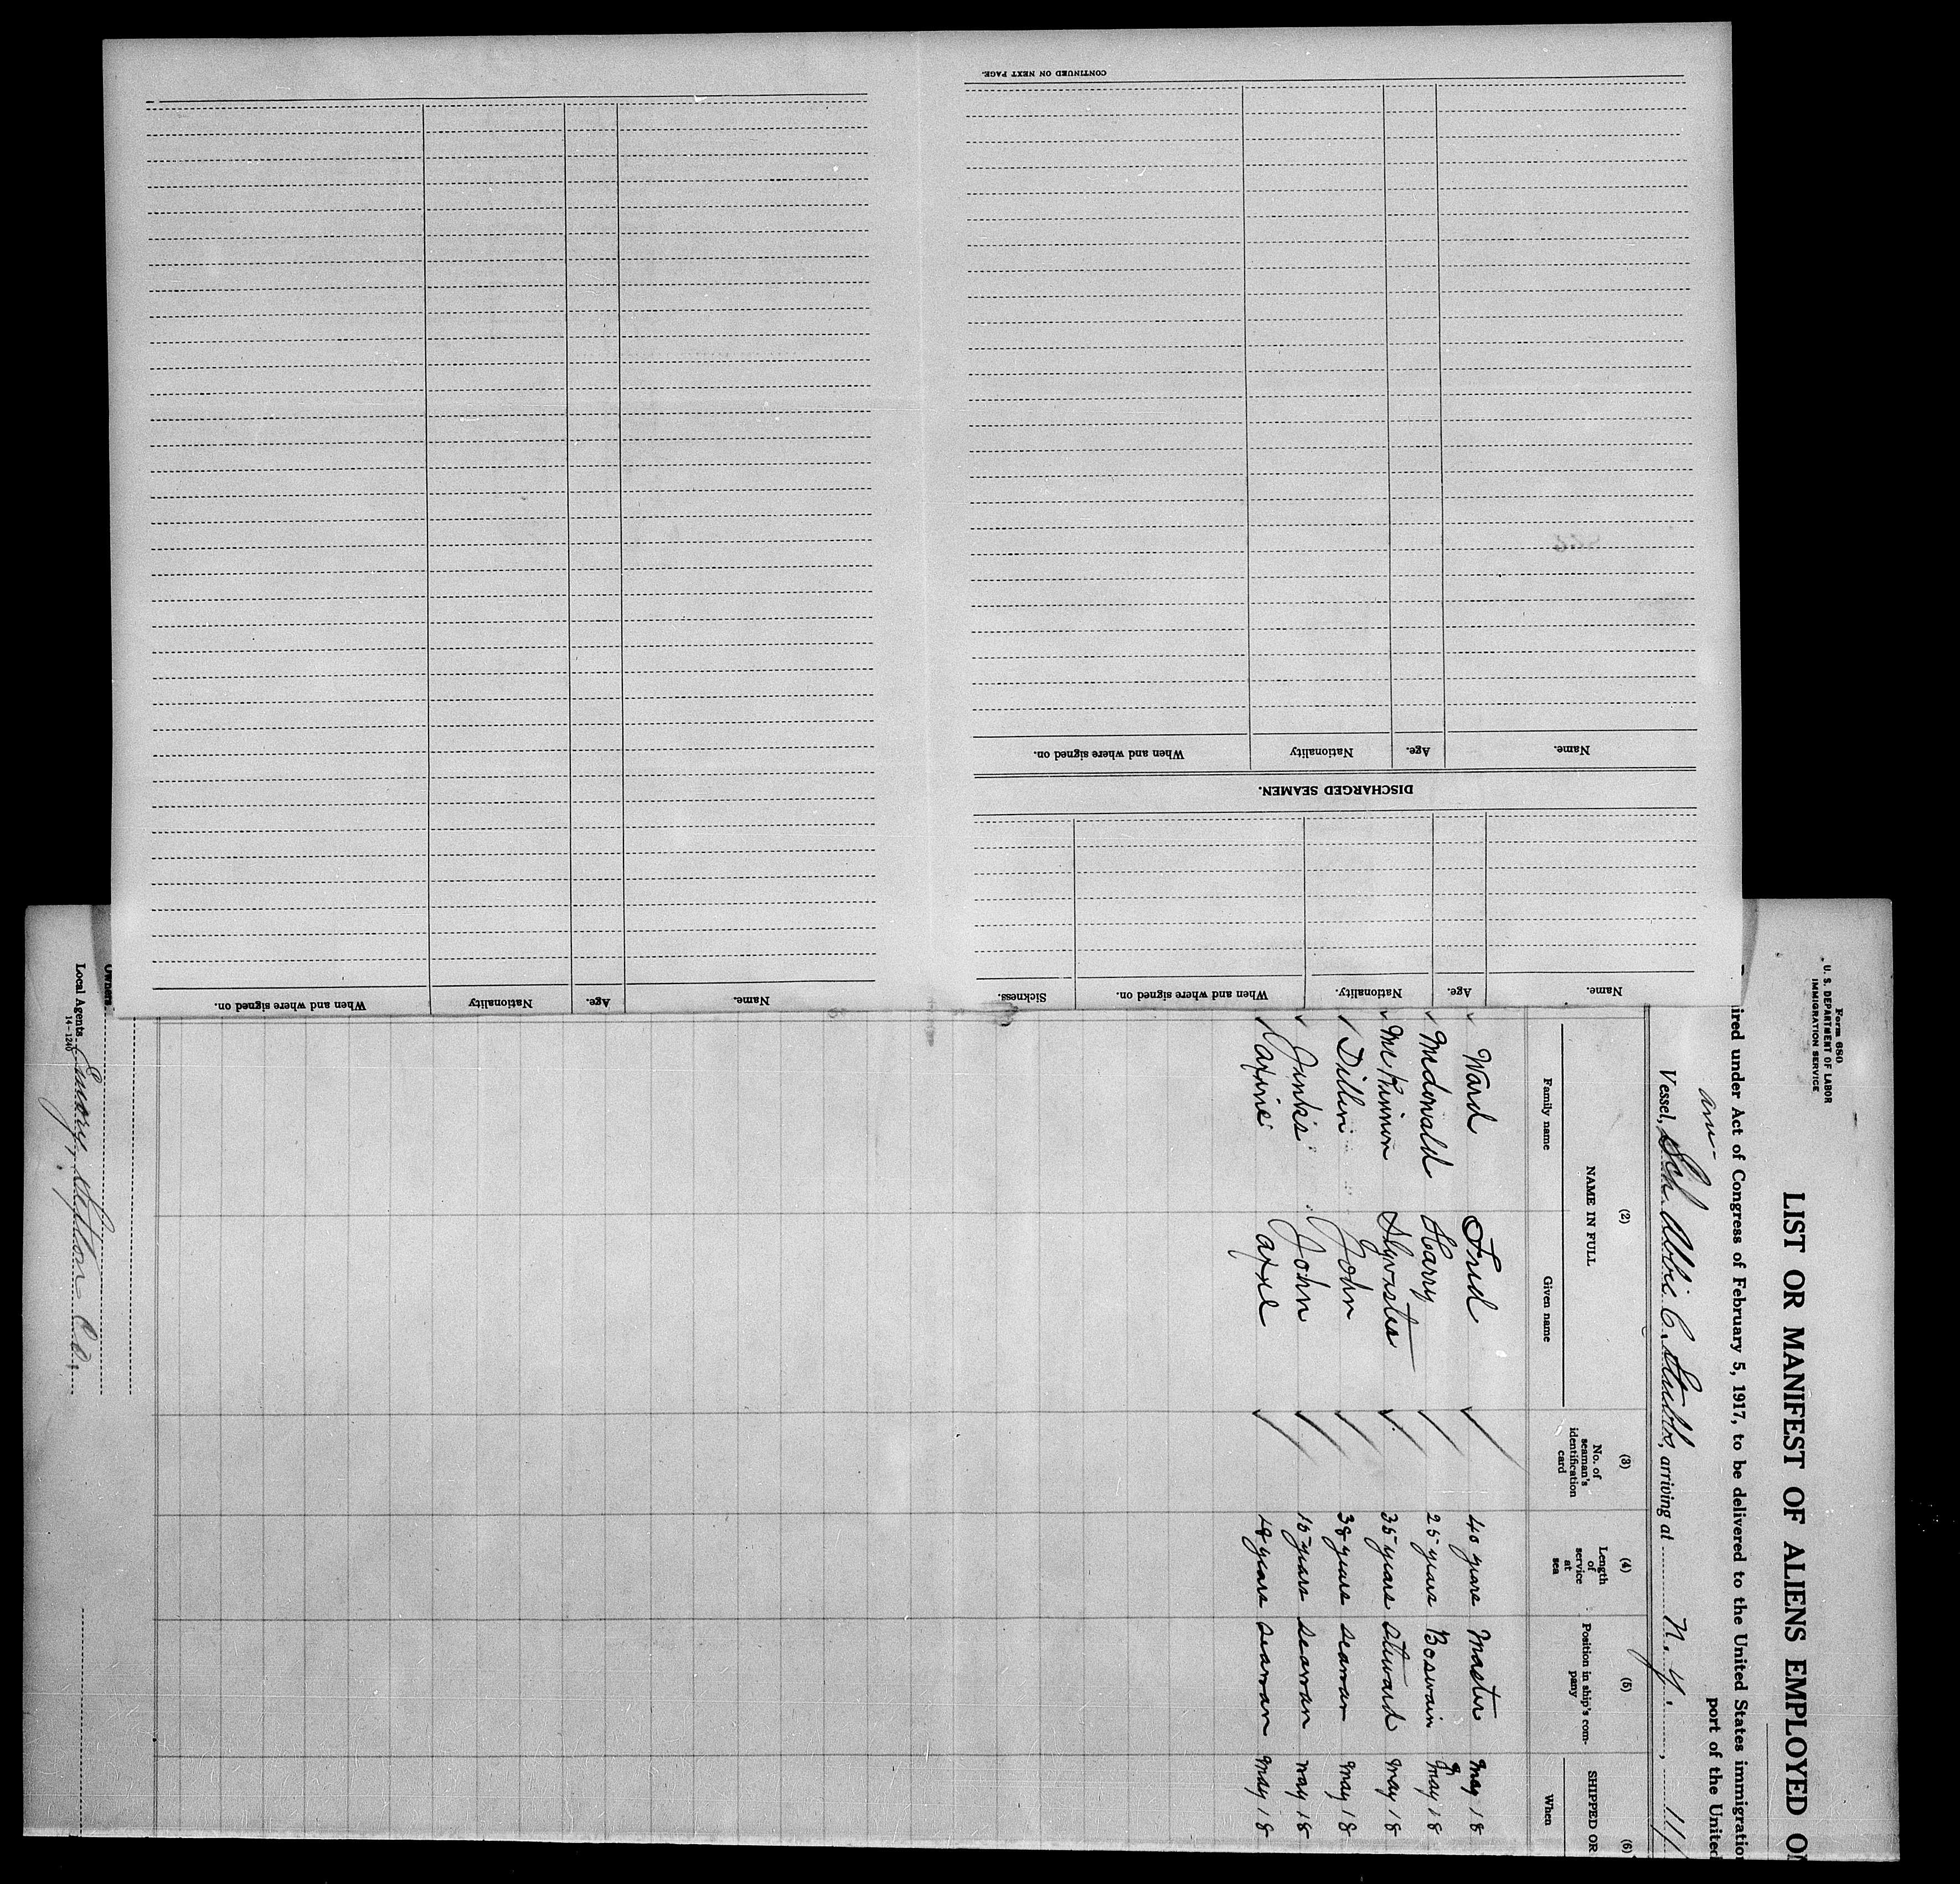 CONTINUED ON NEXT PAGE.
Name. Age. Nationality When and where signed on.
DISCHARGED SEAMEN.
Name. Age. Nationality. When and where signed on. Sickness.
Name. Age. Nationality When and where signed on.
Form 680
U. S. DEPARTMENT OF LABOR
IMMIGRATION SERVICE
LIST OR MANIFEST OF ALIENS EMPLOYED O
ired under Act of Congress of February 5, 1917, to be delivered to the United States immigratio
port of the United
Vessel, Sch Abbie C. Stubbs, arriving at N.Y., 11/
(2) (3) (4) (5) (6)
NAME IN FULL
Family name Given name
No. of seaman's identification card
Length of service at sea
Position in ship's company
SHIPPED OR
When
Ward Fred 40 years Master May 18
McDonald Harry 25 years Boswain May 18
McKinnon Slyvester 35 years Steward May 18
Dillon John 38 years seaman May 18
Jinks John 15 years seaman May 18
Axel 18 years seaman May 18
Owners
Local Agents Co.
14-1240